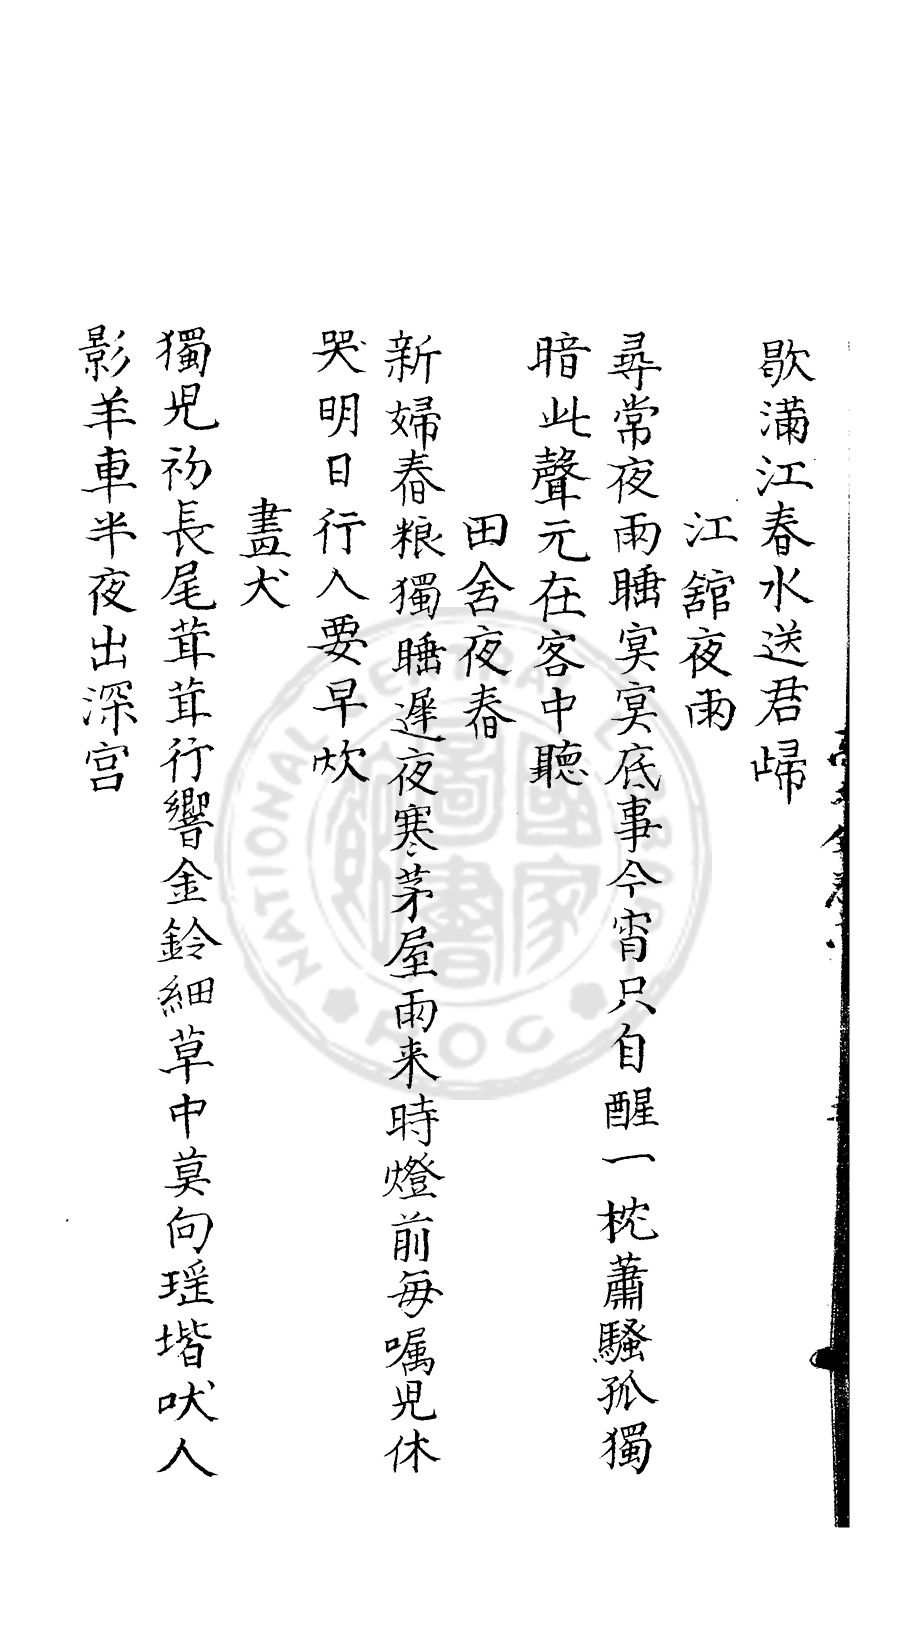 歇滿江春水送君歸
江舘夜雨
尋常夜雨睡冥冥底事今宵只自醒一枕蕭騷孤獨
暗此聲元在客中聽
田舍夜春
新婦春粮獨睡遲夜寒茅屋雨来時燈前每嘱児休
哭明日行人要早炊
畫犬
獨児初長尾茸茸行響金鈴細草中莫向瑶堦吠人
影羊車半夜出深宫
NATIONAL CENTRAL LIBRARY ROC
國家圖書館